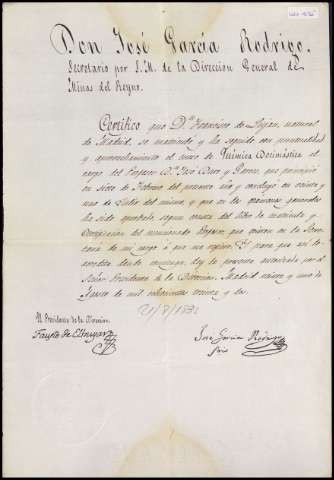 Don José García Rodrigo,
Secretario por S. M. de la Direccion General de
Minas del Reyno.
Certifico que Dn. Francisco de Luján, natural
de Madrid, se matriculó y ha seguido con puntualidad
y aprovechamiento el curso de Química Docimástica al
cargo del Profesor Dn. José Duro y Garces, que principió
en siete de Febrero del presente año y concluyó en veinte y
uno de Julio del mismo, y que en los examenes generales
ha sido
del libro de matrícula y
Certificacion del mencionado Profesor que existen en la Secre-
taría de mi cargo á que me refiero. Y para que así lo
acredite donde convenga, doy la presente autorizada por el
Señor Presidente de la Direccion. Madrid veinte y uno de
Agosto de mil ochocientos treinta y dos.
21/8/1832
El Presidente de la Direccion
Fausto de Elhuyar
José García Rodrigo
Srio